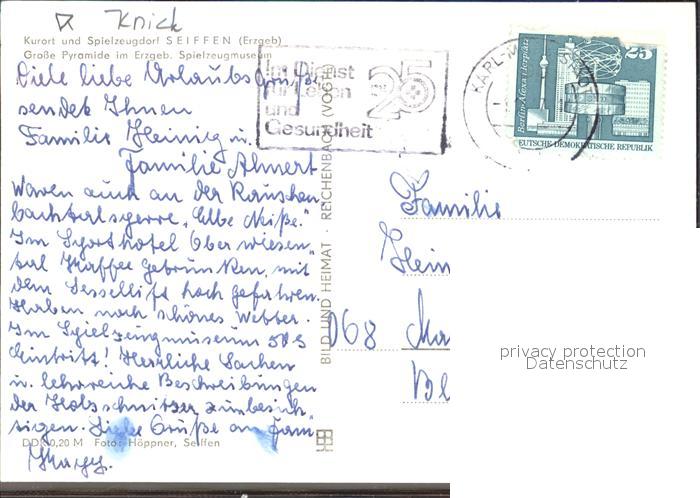 Knick
Kurort und Spielzeugdorf SEIFFEN (Erzgeb)
Große Pyramide im Erzgeb. Spielzeugmuseum
Viele liebe Urlaubsgrüße
sendet Ihnen
Familie Heinig u.
Familie Ahnert
Waren auch an der Rauschen
bachtalsperre, "Elbe Neiße."
Im Sporthotel Oberwiesen"
tal Kaffee getrunken, mit
dem Sessellift hoch gefahren.
Haben noch schönes Wetter.
Im Spielzeugmuseum 50 S
Eintritt! Herrliche Sachen
u. lehrreiche Beschreibungen
der Holzschnitzer zu besich"
tigen. Liebe Grüße an Fam.
DDR 0,20 M Foto: Höppner, Seiffen
BILD UND HEIMAT · REICHENBACH (VOGTL)
Im Dienst
für Leben
und
Gesundheit
25
KARL-M
25
Berlin-Alexanderplatz
DEUTSCHE DEMOKRATISCHE REPUBLIK
Familie
Hein
068 Ma
Bl
privacy protection
Datenschutz